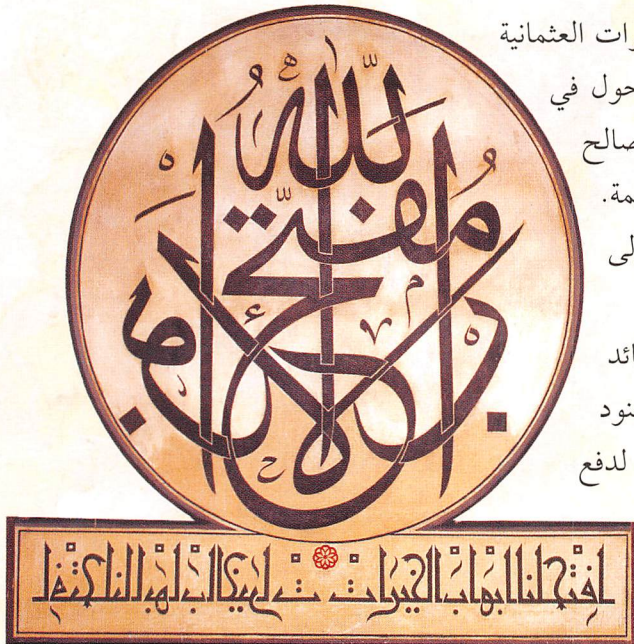 رات العثمانية
حول في
صالح
مة.
لى
ائد
نود
لدفع
الله
مفتح
الابواب
افتح لنا ابواب الخيرات